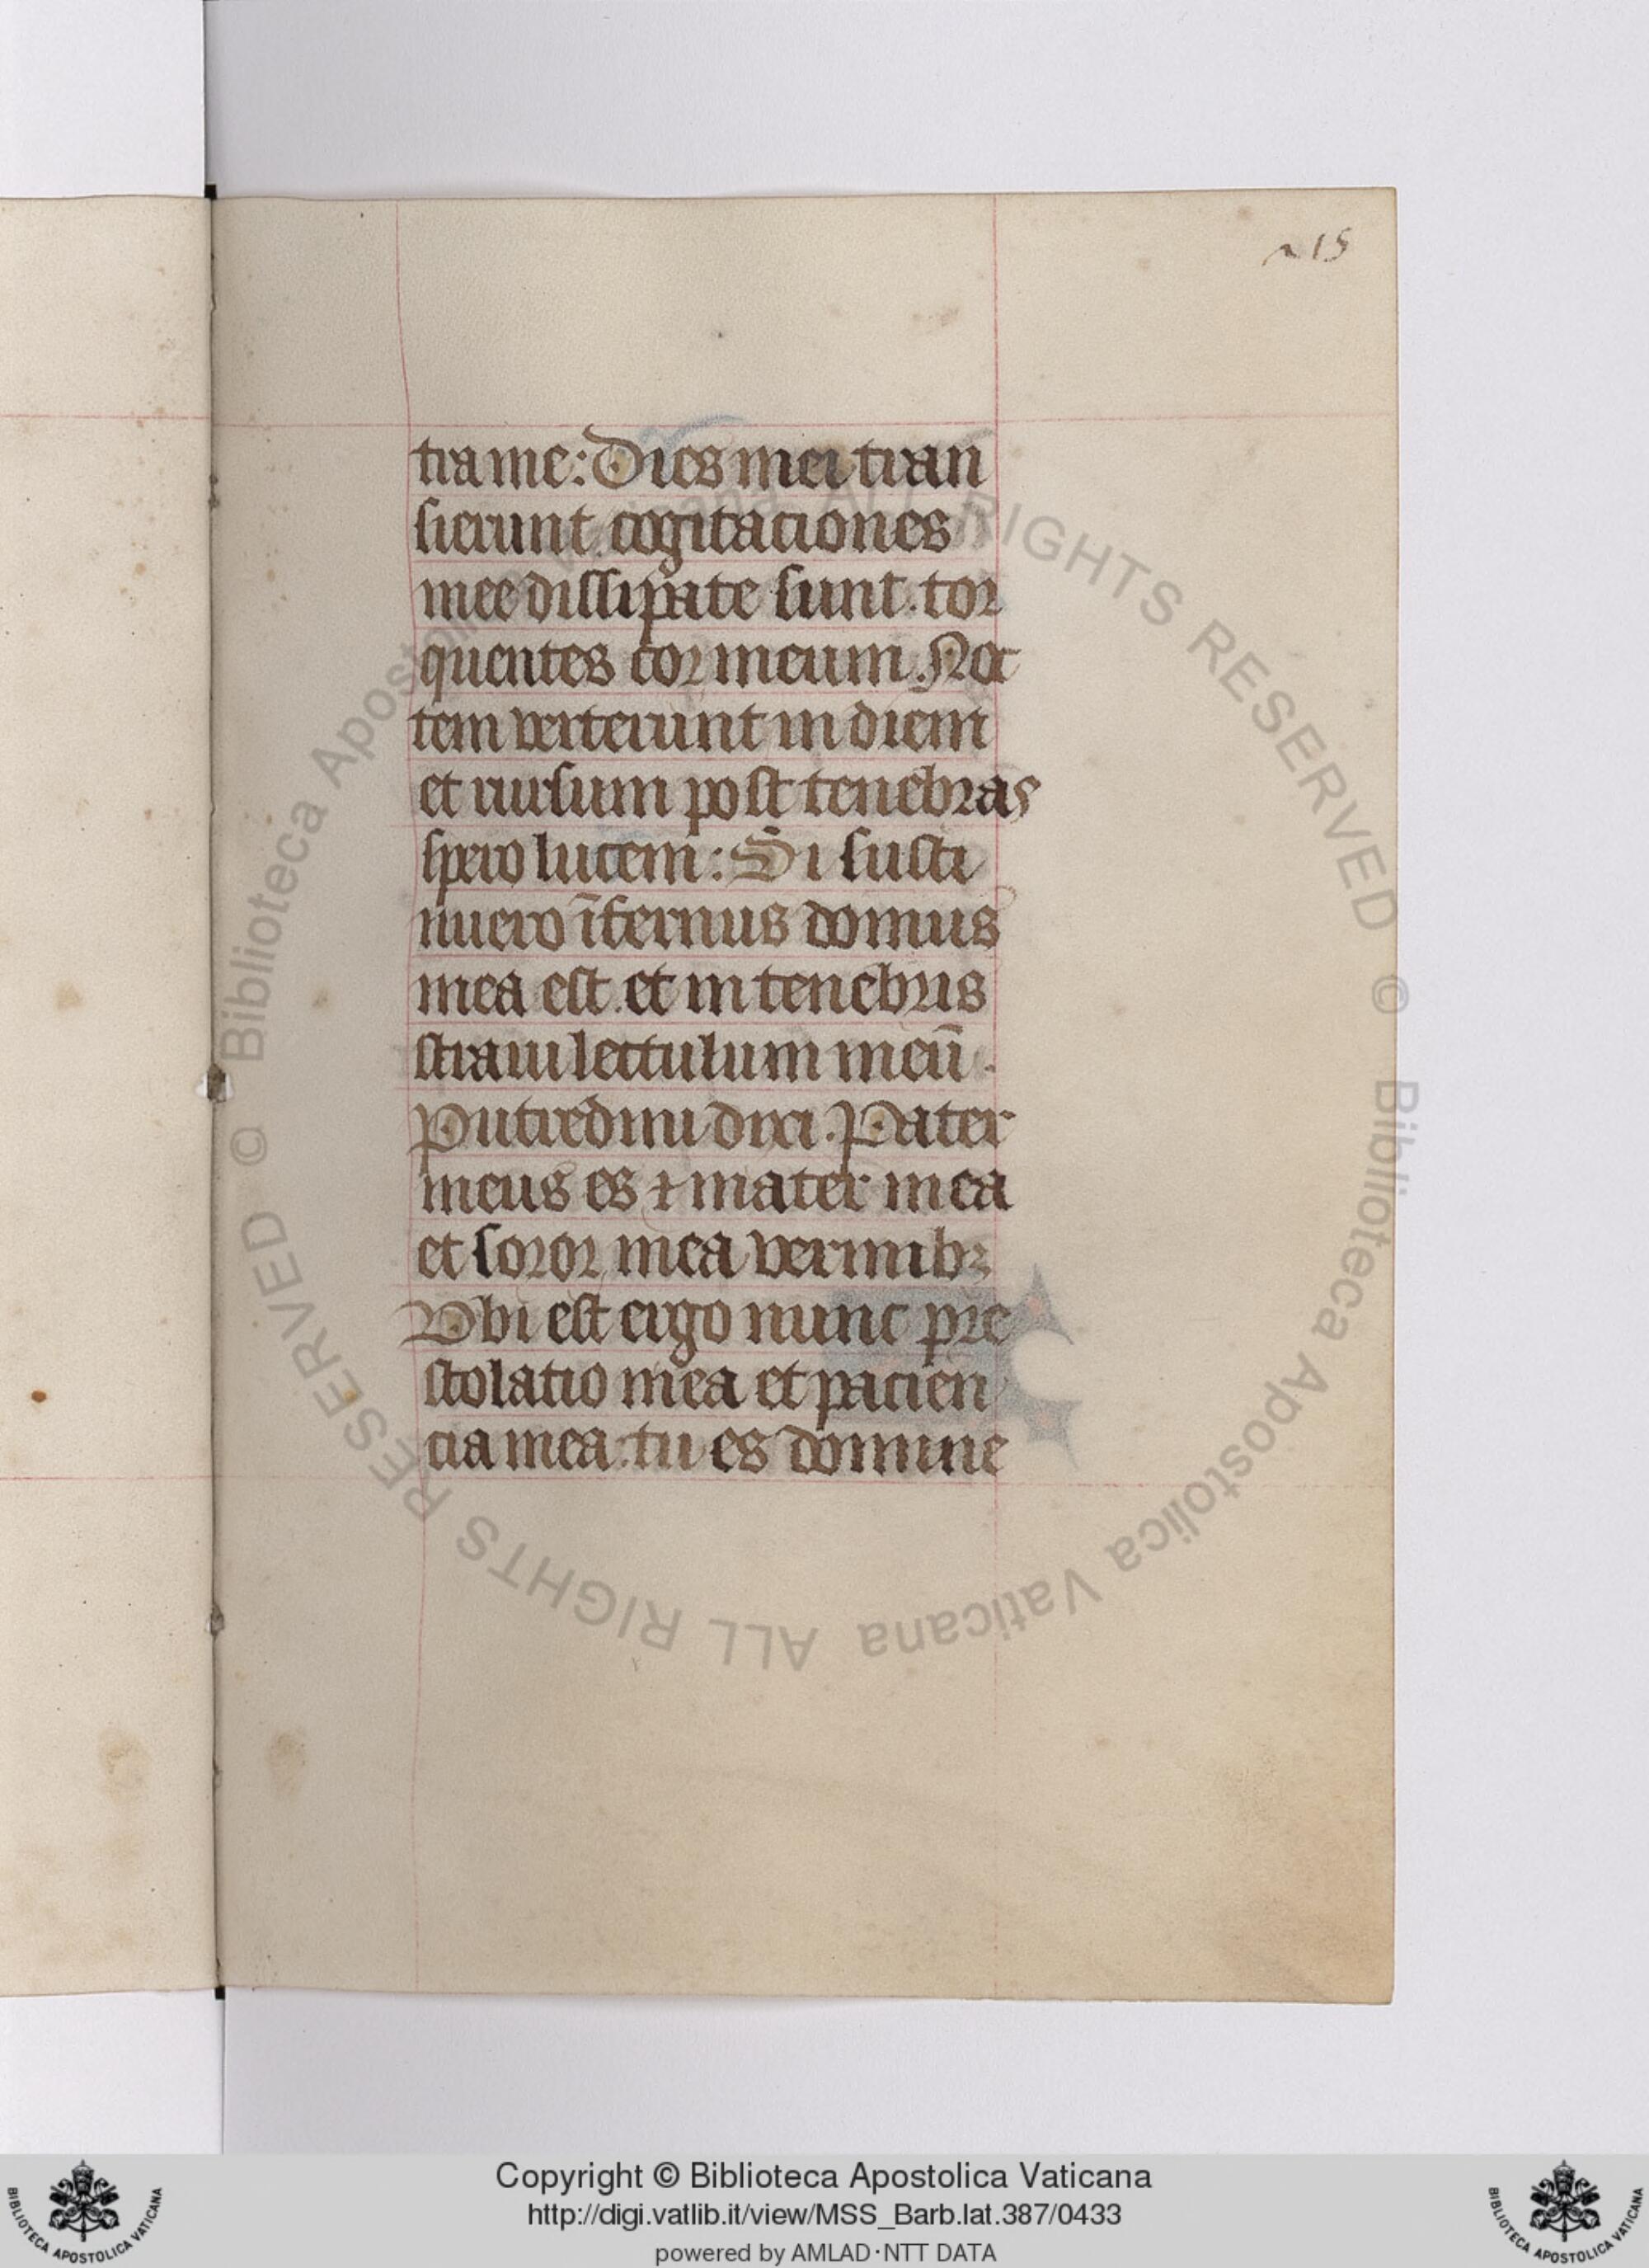 215
tra me: Dies mei tran
sierunt. cogitaciones
mee dissipate sunt. tor
quentes cor meum. Noc
tem verterunt in diem
et rursum post tenebras
spero lucem: Si susti
nuero īfernus domus
mea est. et in tenebris
straui lectulum meū.
Putredini dixi. Pater
meus es ⁊ mater mea
et soror mea vermibꝫ
Vbi est ergo nunc pre
stolatio mea et pacien
cia mea: tu es domine
© Biblioteca Apostolica Vaticana ALL RIGHTS RESERVED © Biblioteca Apostolica Vaticana ALL RIGHTS RESERVED
Copyright © Biblioteca Apostolica Vaticana
http://digi.vatlib.it/view/MSS_Barb.lat.387/0433
powered by AMLAD·NTT DATA
BIBLIOTECA APOSTOLICA VATICANA
BIBLIOTECA APOSTOLICA VATICANA